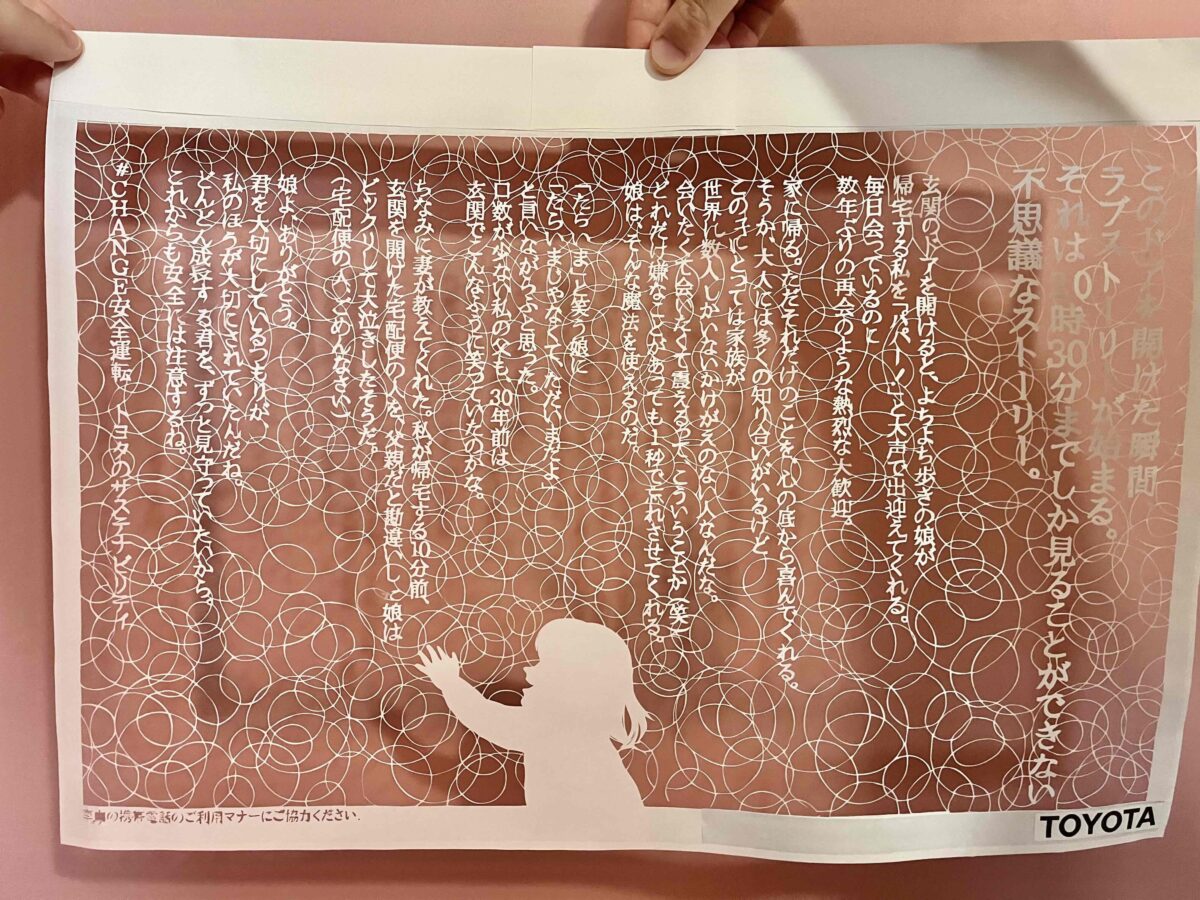 このドアを開けた瞬間
ラブストーリーが始まる。
それは 時30分までしか見ることができない
不思議なストーリー。
玄関のドアを開けると、よちよち歩きの娘が
帰宅する私を「パパー!」と大声で出迎えてくれる。
毎日会っているのに
数年ぶりの再会のような熱烈な大歓迎。
家に帰る。ただそれだけのことを心の底から喜んでくれる。
そうか、大人には多くの知り合いがいるけど
この子にとっては家族が
世界に数人しかいない、かけがえのない人なんだな。
会いたくて会いたくて震えるって、こういうことか(笑)
どれだけ嫌なことがあっても1秒で忘れさせてくれる。
娘は、そんな魔法を使えるのだ。
「たらいま」と笑う娘に
「たらいまじゃなくて、ただいまだよ」
と言いながらふと思った。
口数が少ない私の父も、30年前は
玄関でこんなふうに笑っていたのかな。
ちなみに妻が教えてくれた。私が帰宅する10分前、
玄関を開けた宅配便の人を、父親だと勘違いして娘は
ビックリして大泣きしたそうだ。
(宅配便の人、ごめんなさい)
娘よ、ありがとう。
君を大切にしているつもりが、
私のほうが大切にされていたんだね。
どんどん成長する君を、ずっと見守っていたいから。
これからも安全には注意するね。
#CHANGE安全運転 トヨタのサステナビリティ
の携帯電話のご利用マナーにご協力ください.
TOYOTA